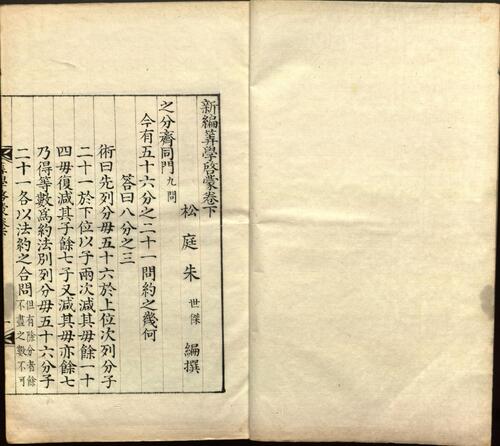 新編筭學啓蒙卷下
松庭朱世傑編撰
之分齊同門 九問
今有五十六分之二十一問約之幾何
答曰八分之三
術曰先列分毋五十六於上位次列分子
二十一於下位以子兩次減其毋餘一十
四毋復減其子餘七子又減其毋亦餘七
乃得等數爲約法別列分毋五十六分子
二十一各以法約之合問 但有除分者餘不盡之數不可